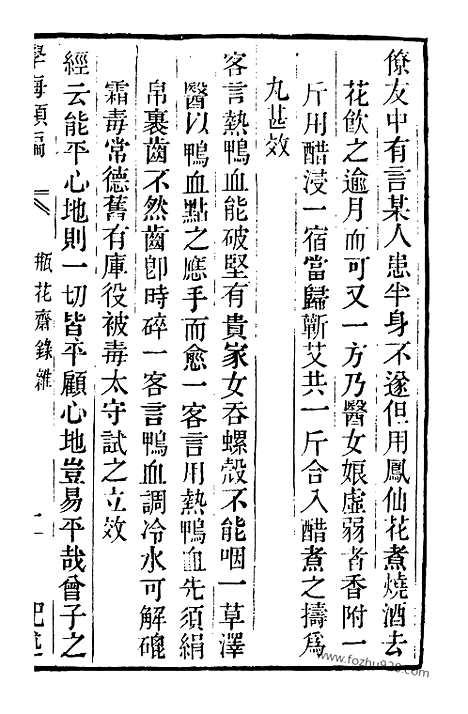 僚友中有言某人患半身不遂但用鳳仙花煮燒酒去
花飲之逾月而可又一方乃醫女娘虛弱者香附一
斤用醋浸一宿當歸蘄艾共一斤合入醋煮之擣為
丸甚效
客言熱鴨血能破堅有貴家女吞螺殼不能咽一草澤
醫以鴨血點之應手而愈一客言用熱鴨血先須絹
帛裹齒不然齒卽時碎一客言鴨血調冷水可解磇
霜毒常德舊有庫役被毒太守試之立效
經云能平心地則一切皆平顧心地豈易平哉曾子之
學海類編
瓶花齋錄雜
記述
www.fozhu920.com